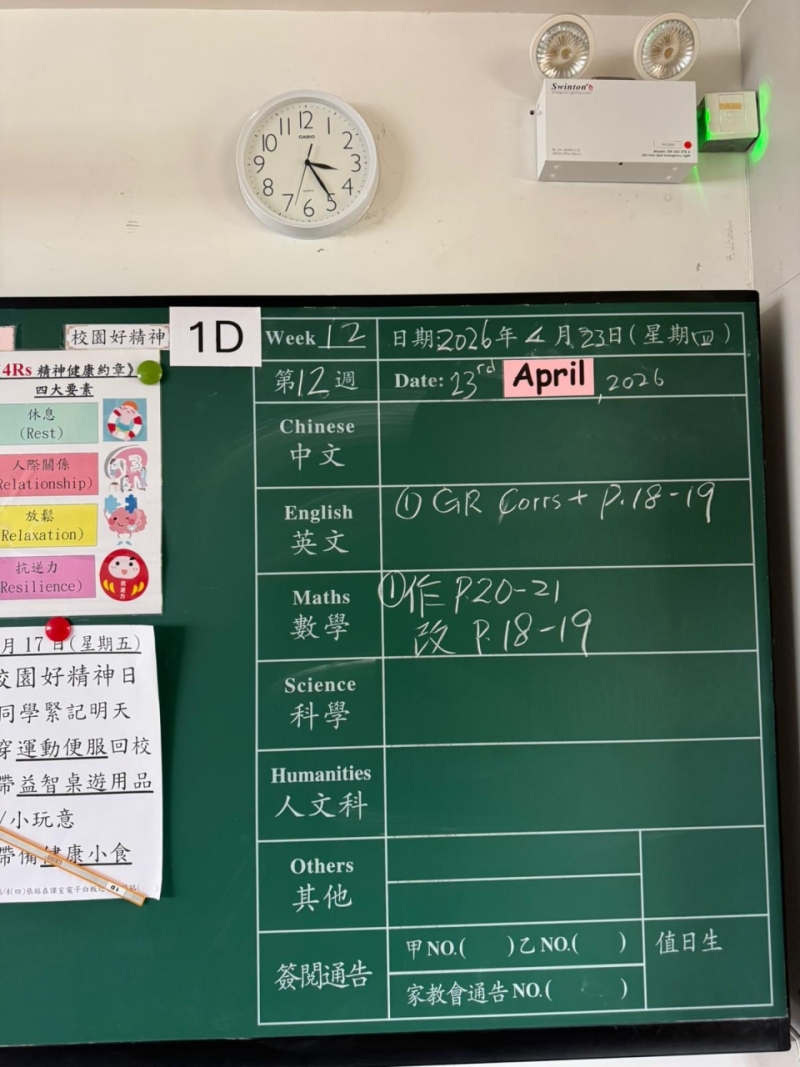 12
11
1
10
2
9
3
8
4
7
5
6
CASIO
Swinton
校園好精神
1D
Week 12
日期2026年4月23日(星期四)
第12週
Date: 23rd April, 2026
4Rs 精神健康約章》
四大要素
休息
(Rest)
人際關係
Relationship)
放鬆
Relaxation)
抗逆力
Resilience)
Chinese
中文
English
英文
① GR Corrs + P.18-19
Maths
數學
①作 P.20-21
改 P.18-19
Science
科學
Humanities
人文科
Others
其他
簽閱通告
甲NO.( )乙NO.( )
家教會通告NO.( )
值日生
月17日(星期五)
校園好精神日
同學緊記明天
穿運動便服回校
帶益智桌遊用品
/小玩意
帶備健康小食